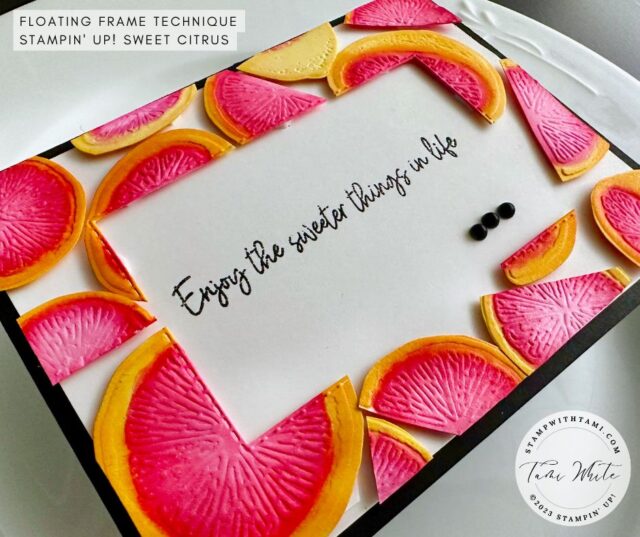 FLOATING FRAME TECHNIQUE
STAMPIN' UP! SWEET CITRUS
Enjoy the sweeter things in life
STAMPWITHTAMI.COM
Tami White
©2023 STAMPIN' UP!